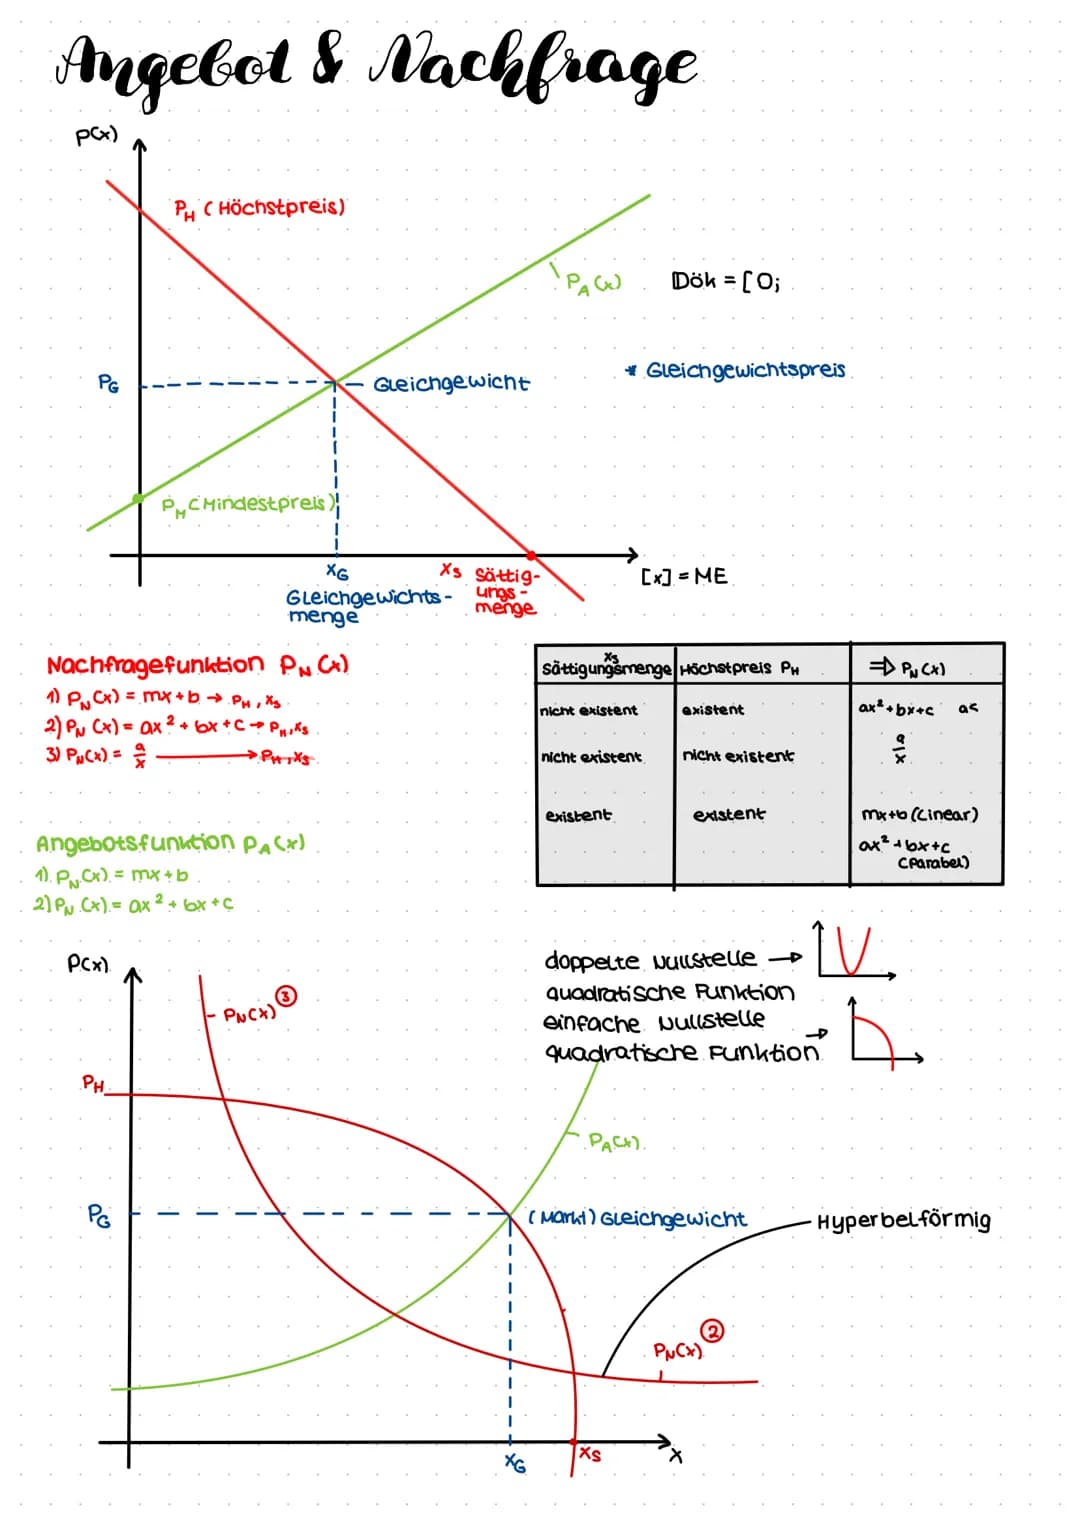 Angebot & Nachfrage
P(x)
P_H (Höchstpreis)
P_A(x)
Dök = [0;
P_G
Gleichgewicht
* Gleichgewichtspreis
P_M (Mindestpreis)
x_G
x_S Sättig-
ungs-
menge
[x] = ME
Gleichgewichts-
menge
Nachfragefunktion P_N(x)
1) P_N(x) = mx+b → P_H, x_S
2) P_N(x) = ax²+bx+c → P_H, x_S
3) P_N(x) = a/x → P_H, x_S
x_S
Sättigungsmenge Höchstpreis P_H ⇒ P_N(x)
nicht existent existent ax²+bx+c a<
nicht existent nicht existent a/x
existent existent mx+b (Linear)
ax²+bx+c
(Parabel)
Angebotsfunktion P_A(x)
1) P_N(x) = mx+b
2) P_N(x) = ax²+bx+c
doppelte Nullstelle →
quadratische Funktion
einfache Nullstelle →
quadratische Funktion
P(x)
P_N(x) ③
P_H
P_A(x)
P_G
(Markt) Gleichgewicht
Hyperbelförmig
P_N(x) ②
x_G
x_S
x